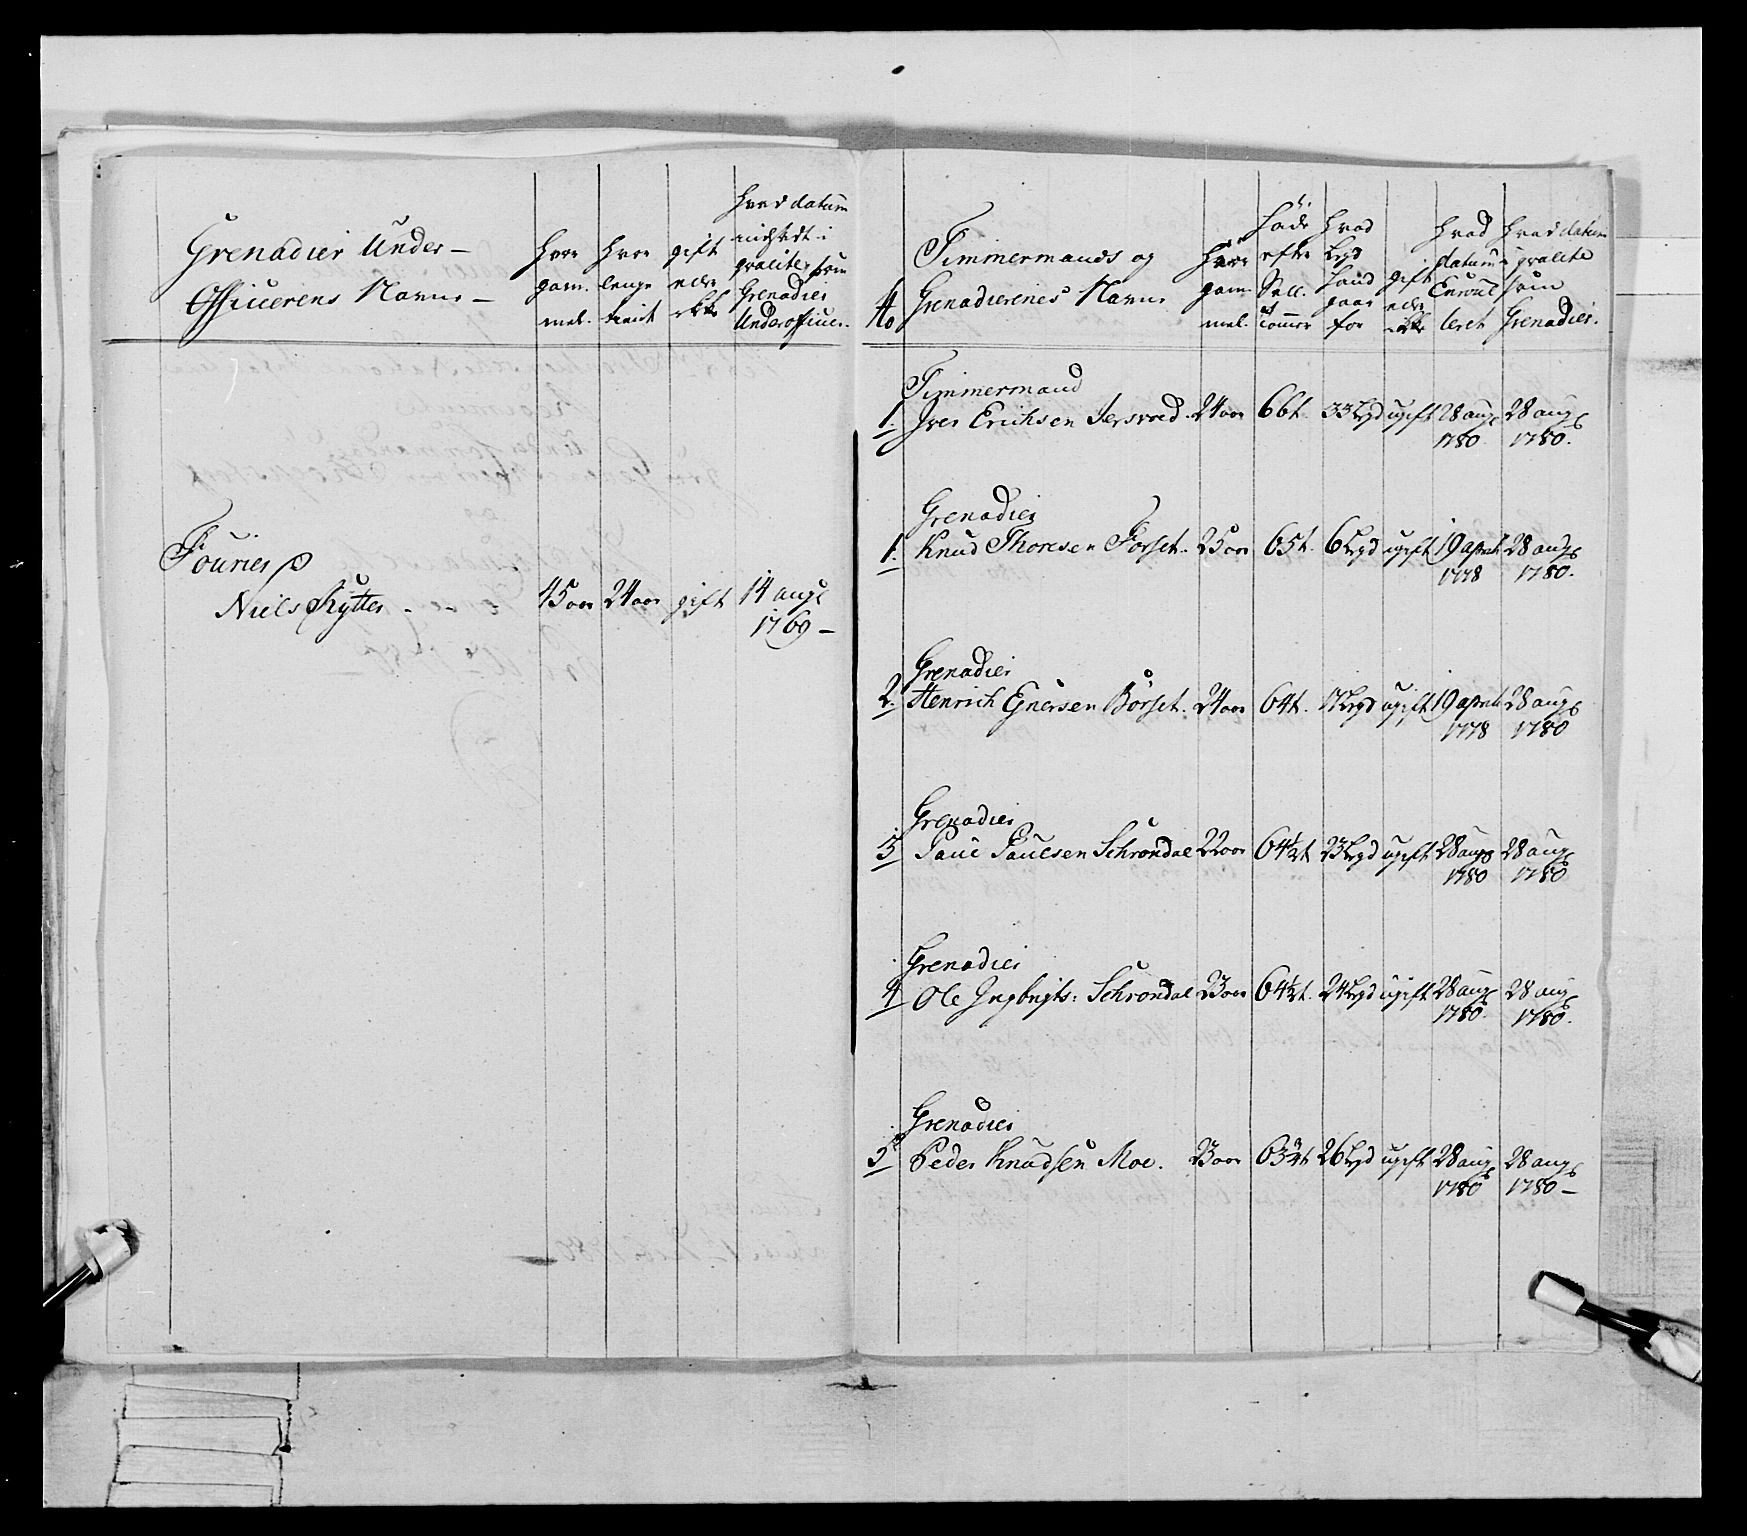 Grenadier Under-
Officerens Navne -
hvor
gam-
mel.
hvor
lenge
tient
gift
eller
ikke
hvad datum
indstædt i
qvalitet som
Grenadier
Underofficer.
Fourier
Niels Rytter - - 45 aar 24 aar gift 14 augl
1769 -
No
Timmermands og
Grenadierenes Navne
hvor
gam-
mel.
høide
efter
Sell.
tommer
hvad
Legd
Land
gaar
for
gift
eller
ikke
hvad
datum
Enroul
leret
hvad datum
i qvalite
som
Grenadier.
Timmermand
1. Iver Erichsen 24 aar 66t. 33 Legd ugift 28 aug 28 aug
1780 1780.
Grenadier
1. Knud Thoresen Forset. 25 aar 65t. 6 Legd ugift 19 april 28 aug
1778 1780.
Grenadier
2. Henrich Børset. 24 aar 64t. 17 Legd ugift 19 april 28 aug
1778 1780
Grenadier
3 Paul Paulsen Schrondal 22 aar 64½t 23 Legd ugift 28 aug 28 aug
1780 1780
Grenadier
4 Ole Ingbrigts: Schrondal 23 aar 64½t. 24 Legd ugift 28 aug 28 aug
1780. 1780.
Grenadier
5 Peder Knudsen Moe. 23 aar 26 Legd ugift 28 aug 28 aug
1780 1780 -